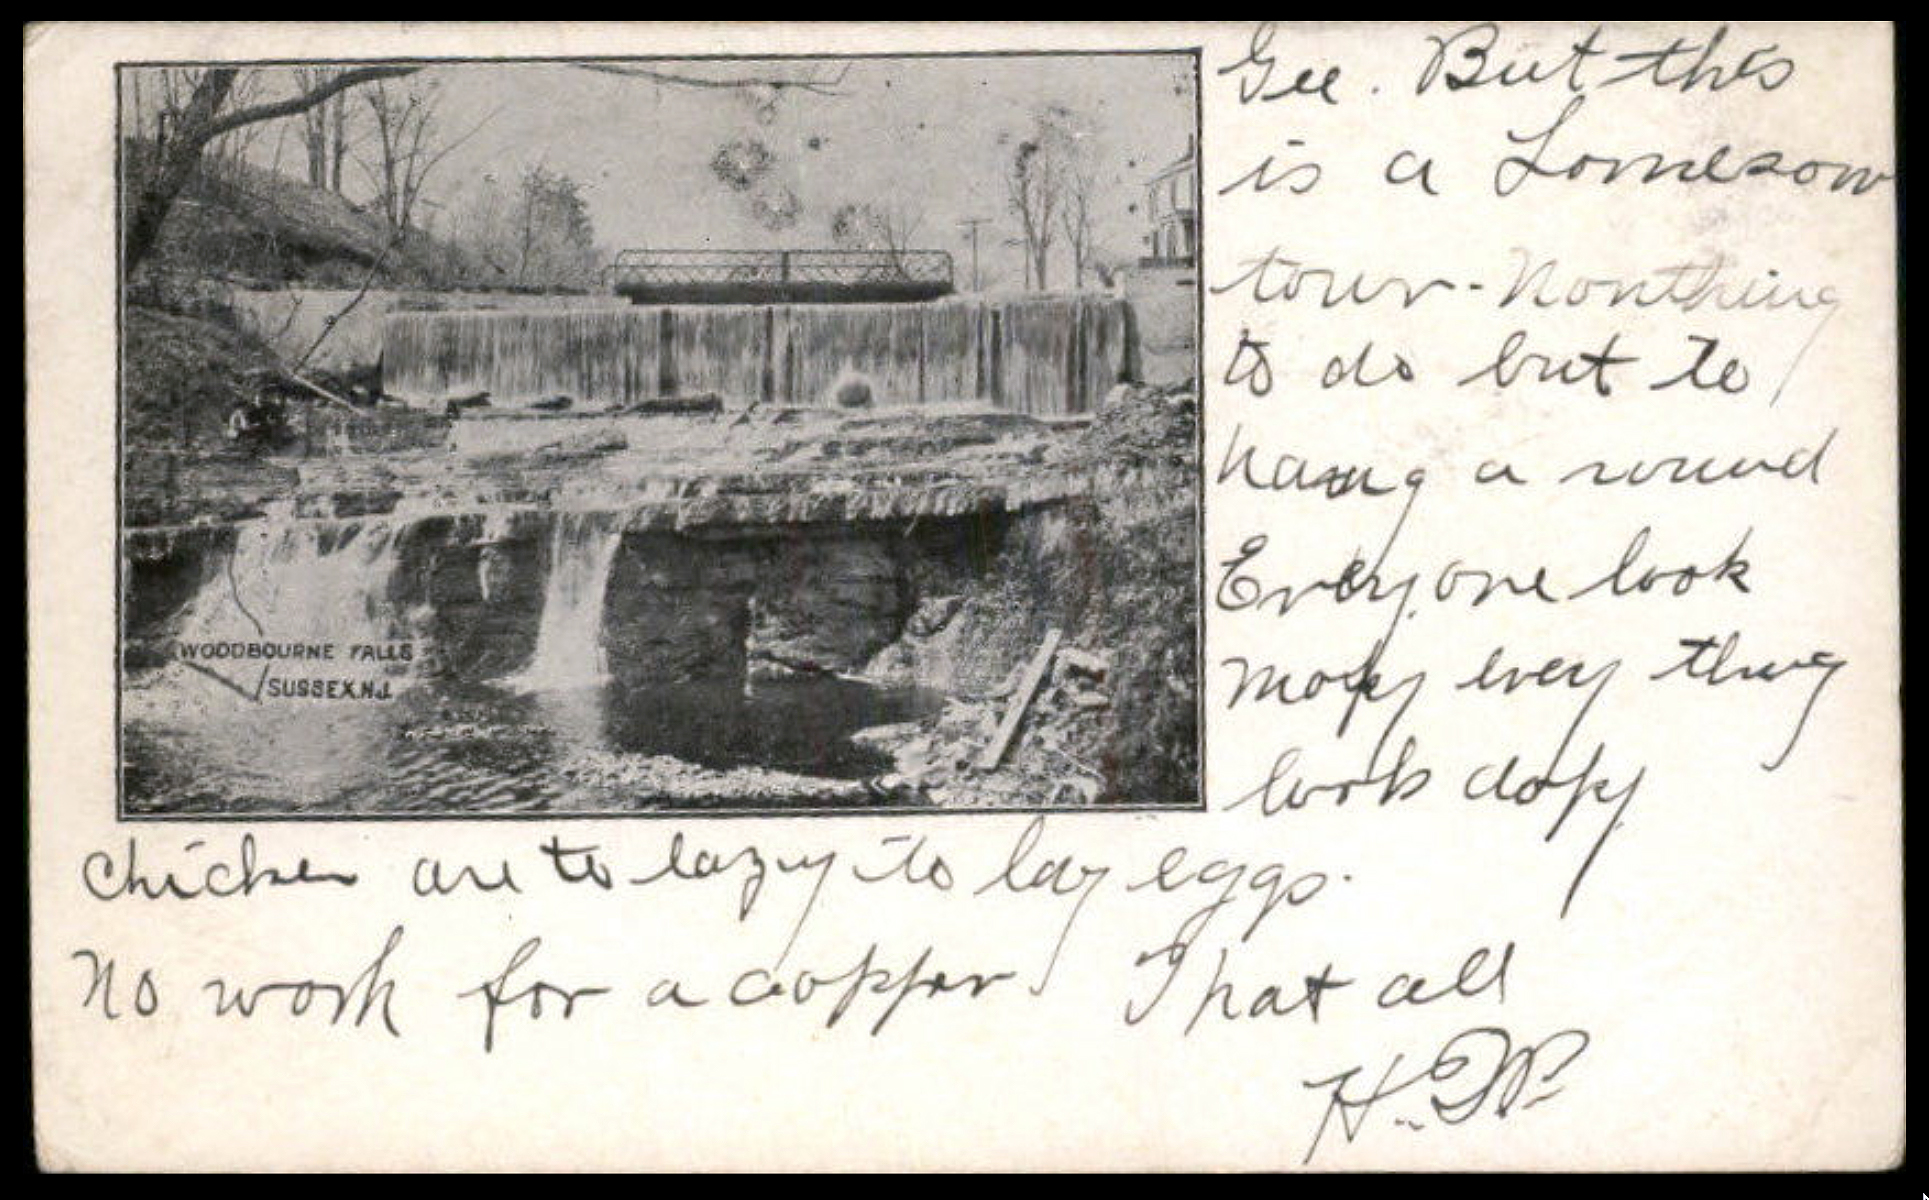 Gee. But this
is a Lomesom
town - Nonthing
to do but to
hang a round
Everyone look
mopy every thing
look dopy
chicken are to lazy to lay eggs.
No work for a copper That all
WOODBOURNE FALLS
SUSSEX, N.J.